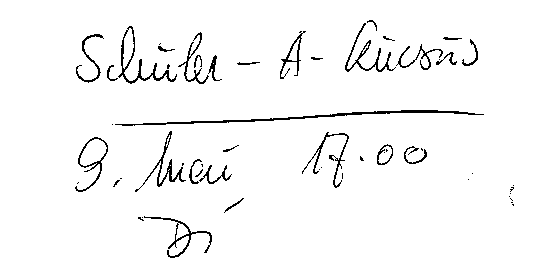 Schüler - A - Kücsüs
9. Mai, 17.00
Di